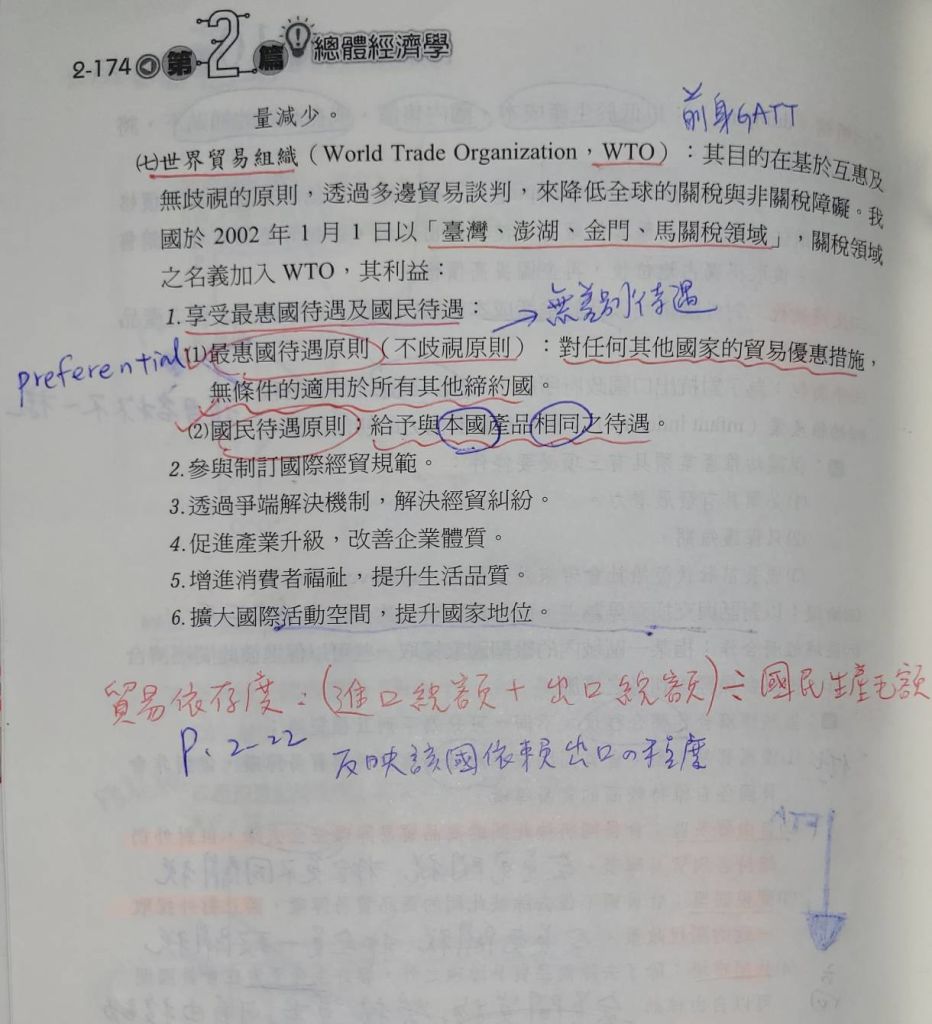 2-174 第2篇 總體經濟學
量減少。
前身GATT
㈦世界貿易組織（World Trade Organization，WTO）：其目的在基於互惠及
無歧視的原則，透過多邊貿易談判，來降低全球的關稅與非關稅障礙。我
國於 2002 年 1 月 1 日以「臺灣、澎湖、金門、馬關稅領域」，關稅領域
之名義加入 WTO，其利益：
1.享受最惠國待遇及國民待遇：
→無差別待遇
preferential
⑴最惠國待遇原則（不歧視原則）：對任何其他國家的貿易優惠措施，
無條件的適用於所有其他締約國。
⑵國民待遇原則：給予與本國產品相同之待遇。
2.參與制訂國際經貿規範。
3.透過爭端解決機制，解決經貿糾紛。
4.促進產業升級，改善企業體質。
5.增進消費者福祉，提升生活品質。
6.擴大國際活動空間，提升國家地位。
貿易依存度：(進口總額 + 出口總額) ÷ 國民生產毛額
P. 2-22 反映該國依賴出口の程度